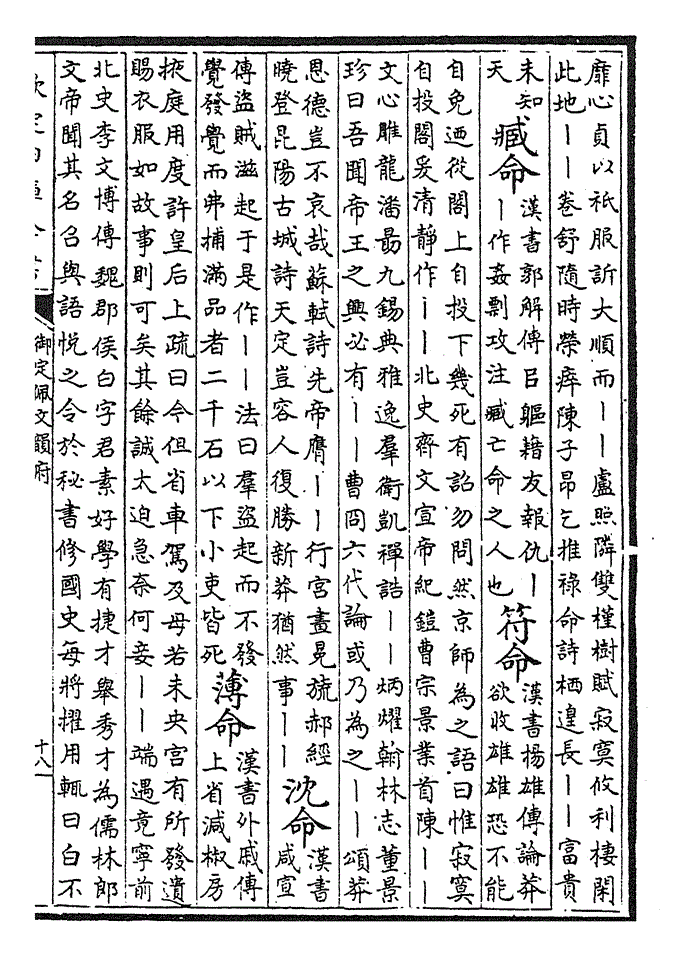 靡心貞以祇服訢大順而丨丨盧照隣雙槿樹賦寂寞攸利棲閑
此地丨丨卷舒隨時榮瘁陳子昂乞推祿命詩栖遑長丨丨富貴
未知
天
臧命
漢書郭解傳㠯軀藉友報仇丨
丨作姦剽攻注臧亡命之人也
符命
漢書揚雄傳論莽
欲收雄雄恐不能
自免廼從閣上自投下幾死有詔勿問然京師為之語曰惟寂寞
自投閣爰清靜作丨丨北史齊文宣帝紀鎧曹宗景業首陳丨丨
文心雕龍潘勗九錫典雅逸羣衛凱禪誥丨丨炳燿翰林志董景
珍曰吾聞帝王之興必有丨丨曹冏六代論或乃為之丨丨頌莽
恩德豈不哀哉蘇軾詩先帝膺丨丨行宫畫冕旒郝經
曉登昆陽古城詩天定豈容人復勝新莽猶然事丨丨
沈命
漢書
咸宣
傳盜賊滋起于是作丨丨法曰羣盜起而不發
覺發覺而弗捕滿品者二千石以下小吏皆死
薄命
漢書外戚傳
上省減椒房
掖庭用度許皇后上疏曰今但省車駕及母若未央宫有所發遺
賜衣服如故事則可矣其餘誠太迫急奈何妾丨丨端遇竟寧前
北史李文博傳魏郡侯白字君素好學有捷才舉秀才為儒林郎
文帝聞其名召與語悅之令於秘書修國史每將擢用輒曰白不
御定佩文韻府
十八